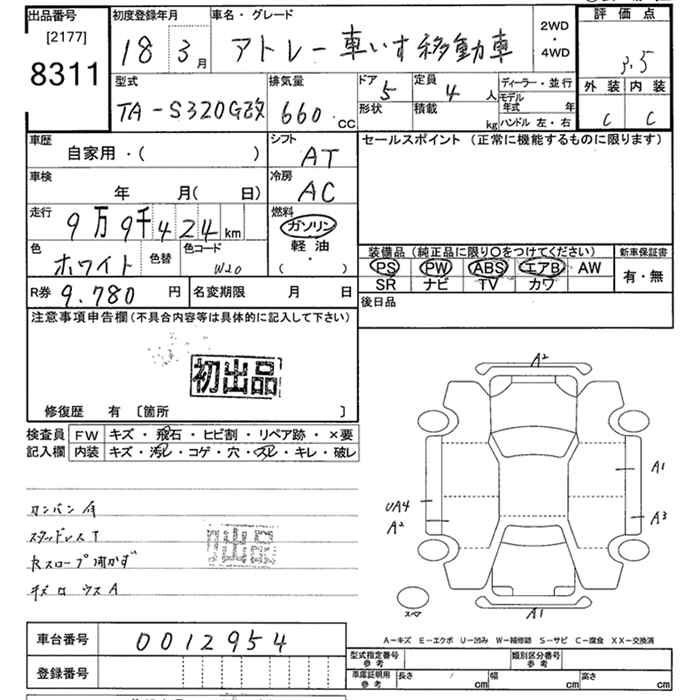 出品番号 初度登録年月 車名・グレード 2WD・4WD 評価点
[2177]
8311
18 3月 アトレー車いす移動車 3.5
型式 排気量 ドア 定員 ディーラー・並行 外装 内装
TA-S320G改 660cc 5 4人 モデル年式 年 C C
形状 積載 kg ハンドル 左・右
車歴 シフト セールスポイント(正常に機能するものに限ります)
自家用・( ) AT
車検 冷房
年 月( 日) AC
走行 燃料
9万9千424km ガソリン
軽油
( ・ )
色 色替 色コード
ホワイト W20
装備品(純正品に限り○をつけてください) 新車保証書
PS PW ABS エアB AW 有・無
SR ナビ TV カワ
R券 9,780円 名変期限 月 日 後日品
注意事項申告欄(不具合内容等は具体的に記入して下さい)
初出品
修復歴 有 [箇所 ]
検査員 FW キズ・飛石・ヒビ割・リペア跡・×要
記入欄 内装 キズ・汚レ・コゲ・穴・スレ・キレ・破レ
A2
A1
UA4
A2
A3
スタッドレスT
初出品
Rスロープ開かず
スペア
A1
A-キズ E-エクボ U-凹み W-補修跡 S-サビ C-腐食 XX-交換済
車台番号 0012954
登録番号
型式指定番号 参考 類別区分番号 参考
車庫証明用 参考 長さ cm 幅 cm 高さ cm